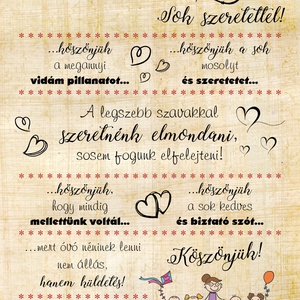 Sok szeretettel!
...köszönjük
a megannyi
vidám pillanatot...
...köszönjük a sok
mosolyt
és szeretetet...
A legszebb szavakkal
szeretnénk elmondani,
sosem fogunk elfelejteni!
...köszönjük,
hogy mindig
mellettünk voltál...
...köszönjük
a sok kedves
és biztató szót...
...mert óvó néninek lenni
nem állás,
hanem küldetés!
Köszönjük!